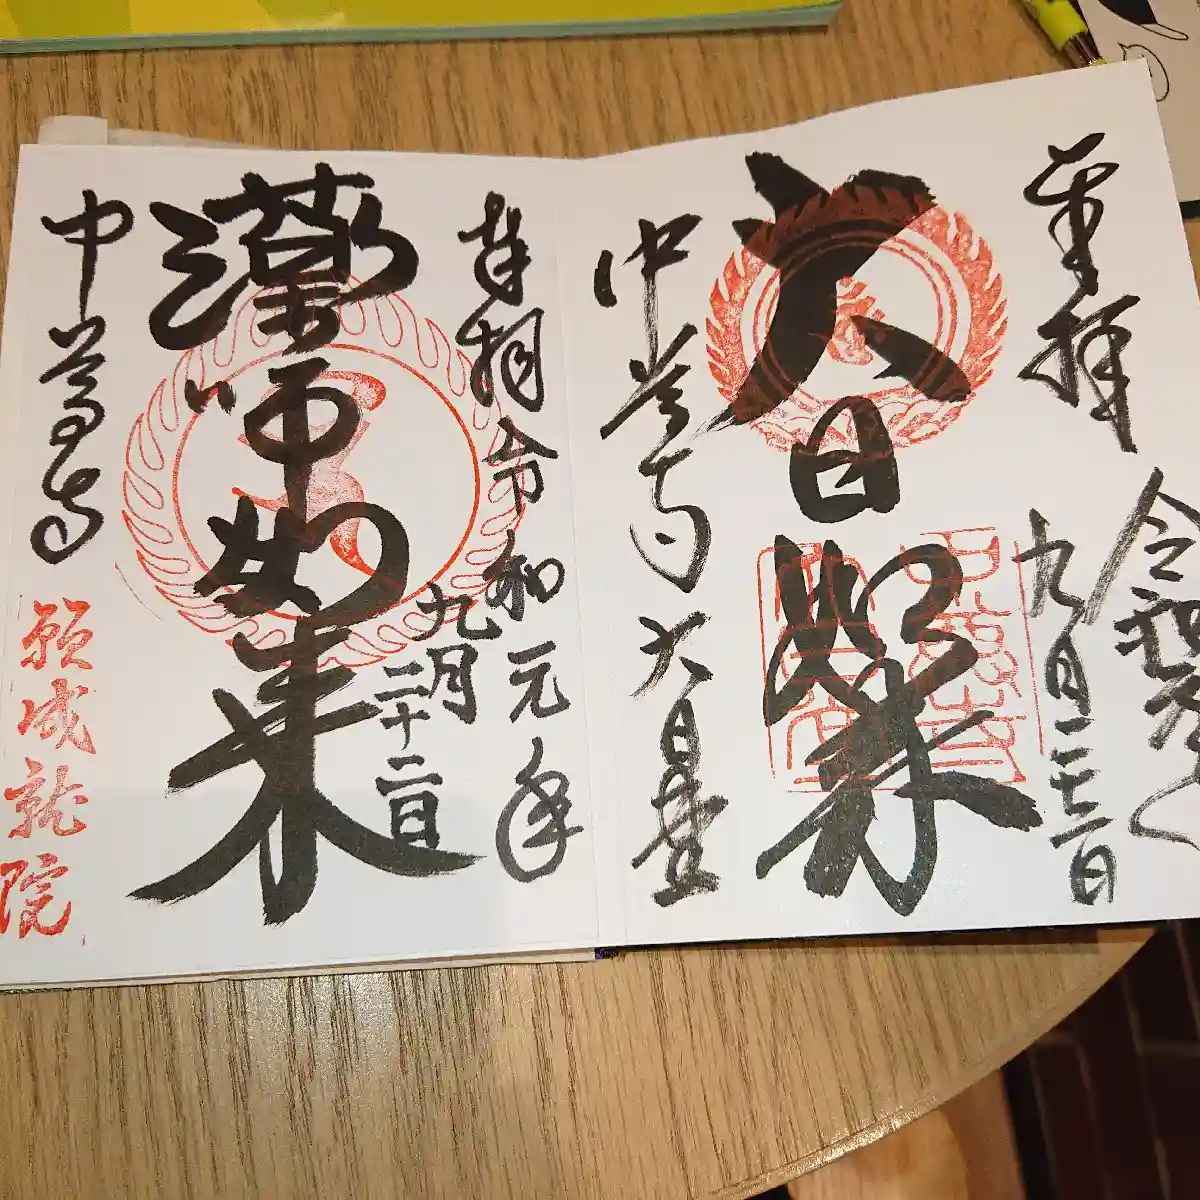 奉拝
令和元年
九月二十二日
大日如来
中尊寺大日堂
奉拝令和元年
九月
二十二日
薬師如来
中尊寺
願成就院